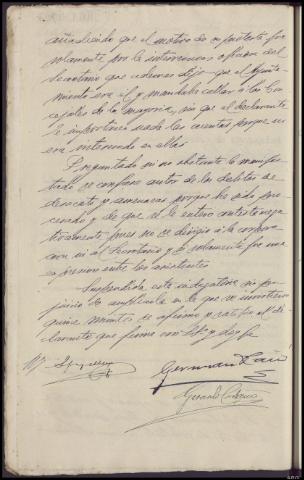 añadiendo que el motivo de su protesta fue
solamente por la intervencion oficiosa del
Secretario que además dijo que el Ayunta-
miento era el q. mandaba callar á los Con-
cejales de la mayoria, sin que al declarante
le importara nada las cuentas porque no
era interesado en ellas.
Preguntado si no obstante lo manifes-
tado se confiesa autor de los delitos de
desacato y amenazas porque ha sido pro-
cesado y de que se le entero contesto nega-
tivamente pues no se dirigio á la corpora-
cion ni al Secretario y si solamente fue una
espresion entre los asistentes
Suspendida esta indagatoria sin per-
juicio de ampliarla en lo que se
quince minutos se afirmo y ratifico el de-
clarante que firma con S.S. y doy fe
German
Gerardo